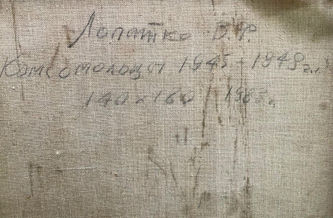 Лопатко В.Ф.
Комсомольцы 1945-1948г.г.
140 х 160 1968г.